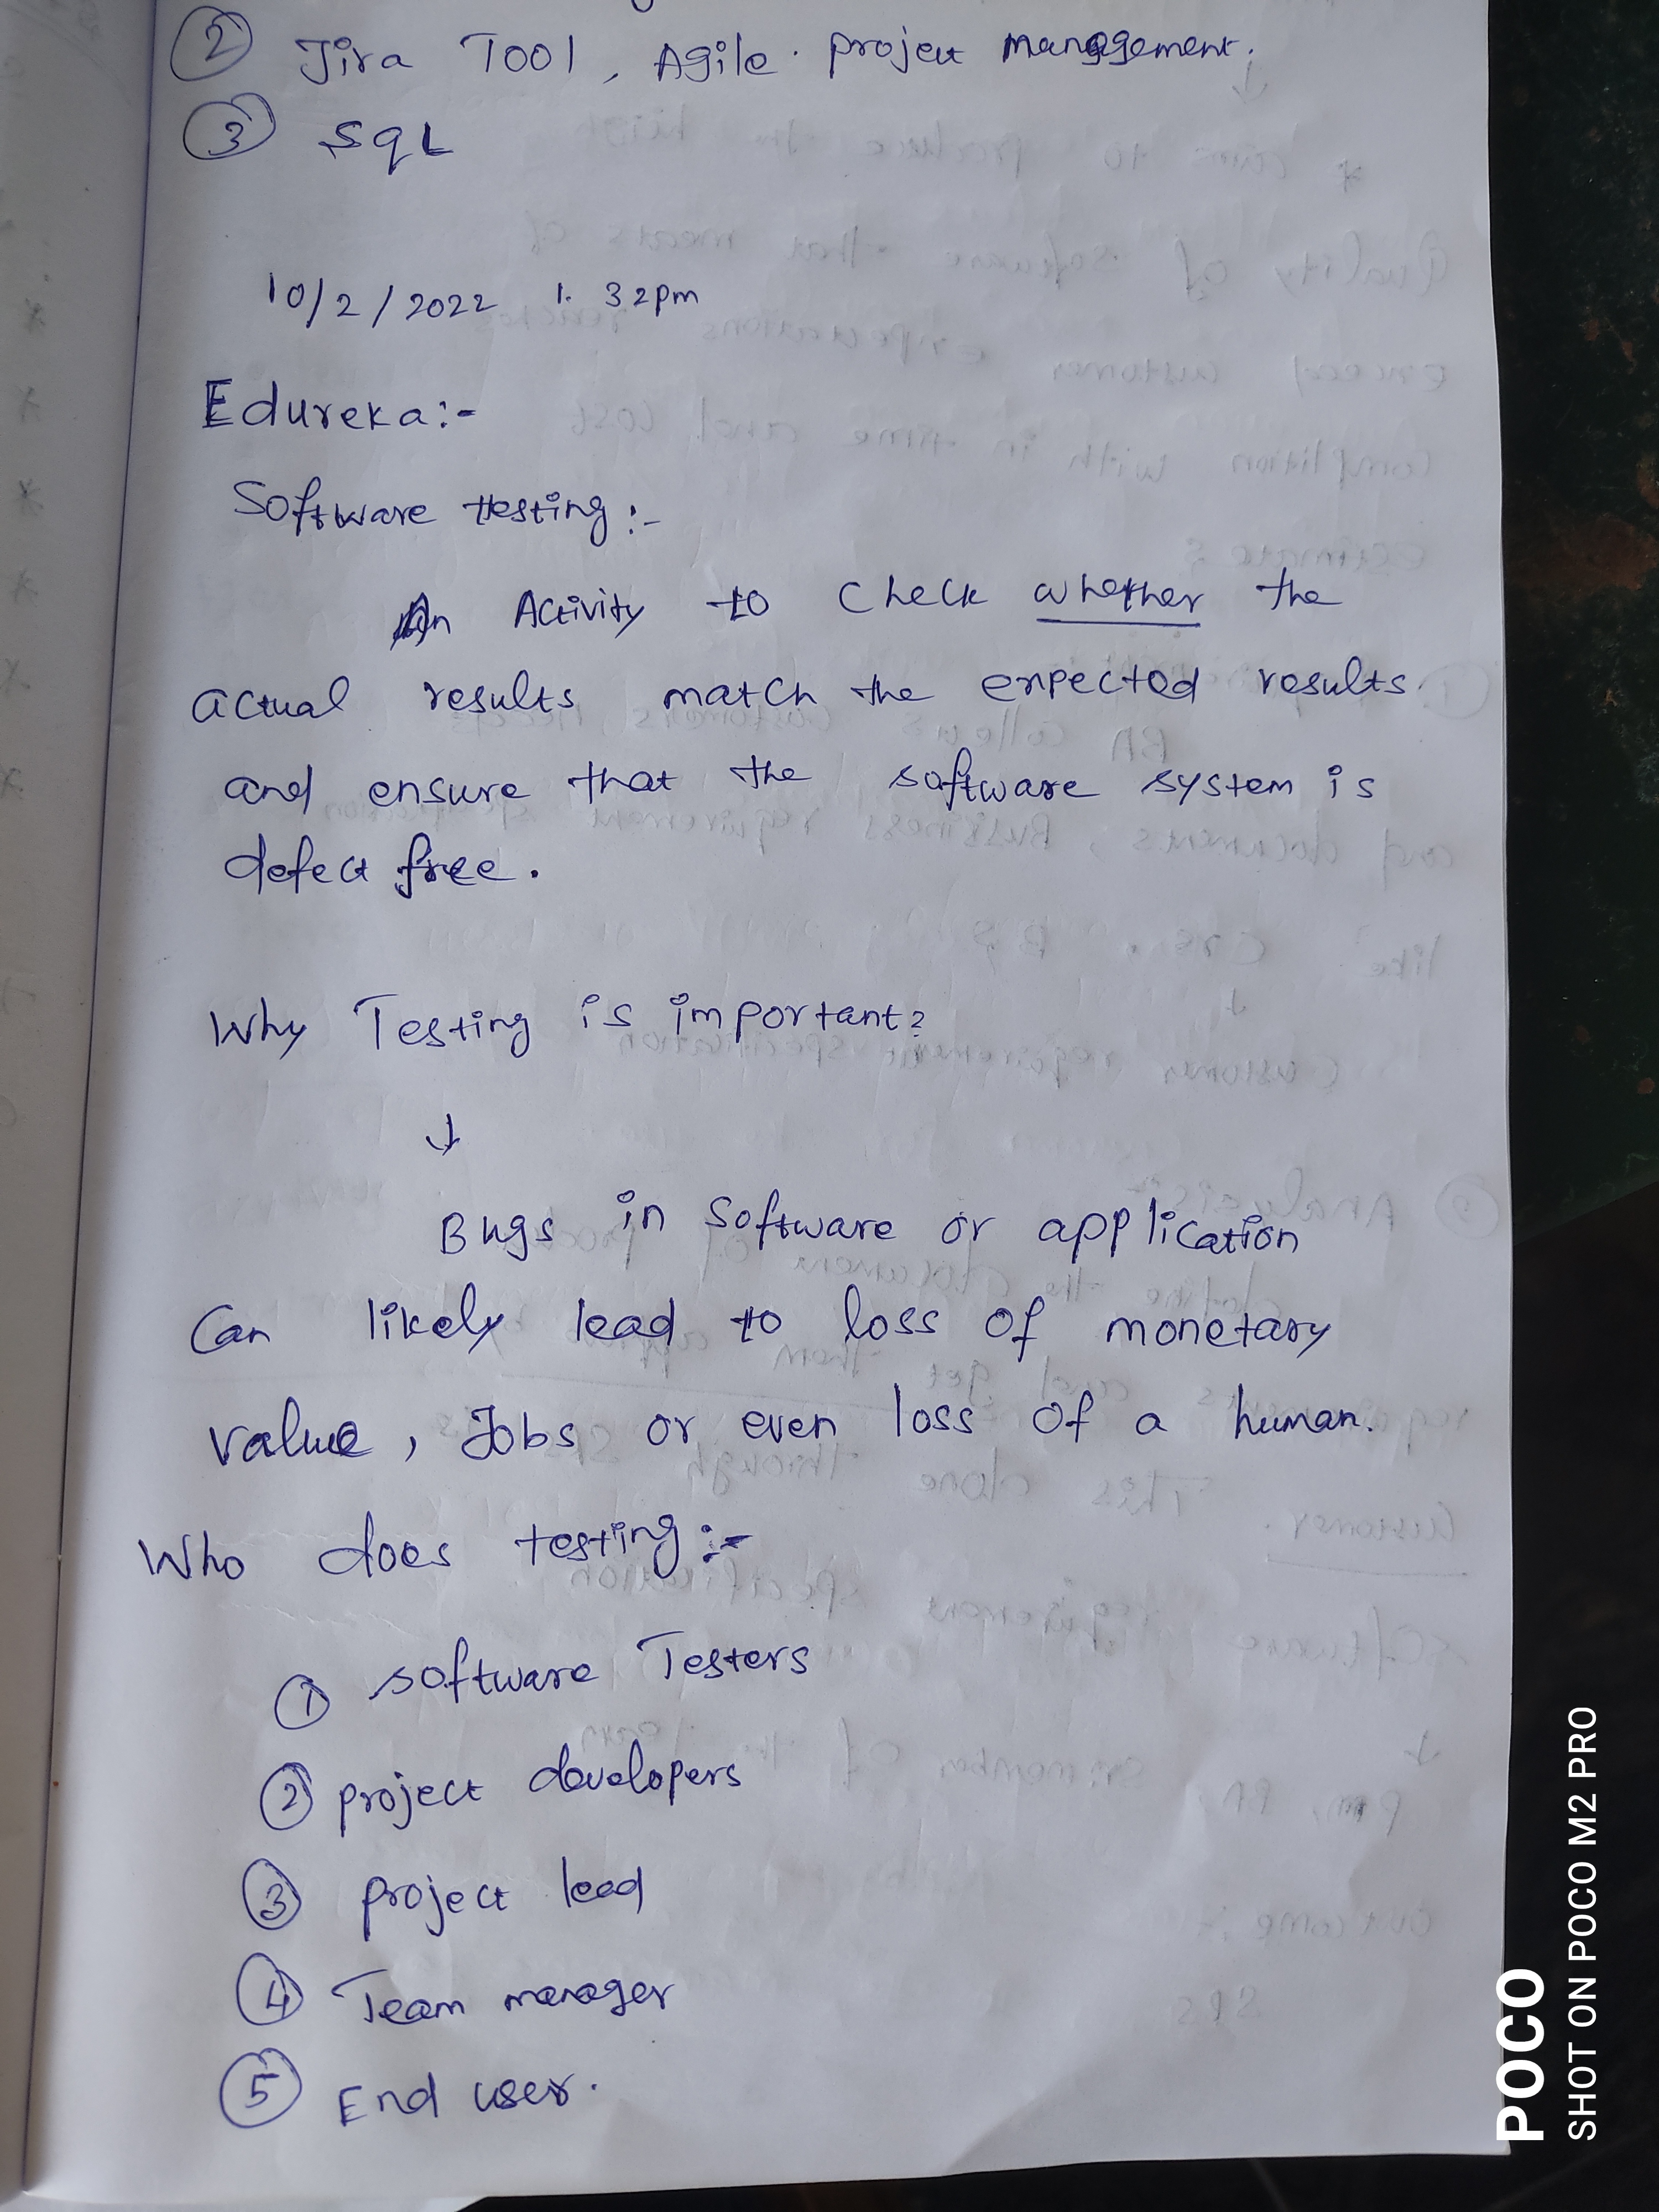 ② Jira Tool, Agile. project management.
③ SQL
10/2/2022 1. 32pm
Edureka:-
Software testing :-
An Activity to check whether the
actual results match the expected results.
and ensure that the software system is
defect free.
Why Testing is important?
↓
Bugs in software or application
Can likely lead to loss of monetary
value, Jobs or even loss of a human.
Who does testing :-
① software Testers
② project developers
③ project lead
④ Team manager
⑤ End user.
POCO
SHOT ON POCO M2 PRO